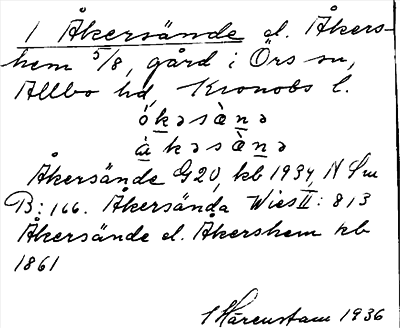 1 Åkersände el. Åkers-
hem 5/8, gård i Örs sn,
Allbo hd, Kronobs l.
ókəsὲnə
àkəsὲnə
Åkersände G20, kb 1934, N Sm
B: 166. Åkersända Wies II: 813
Åkersände el. Åkershem kb
1861
Hårenstam 1936